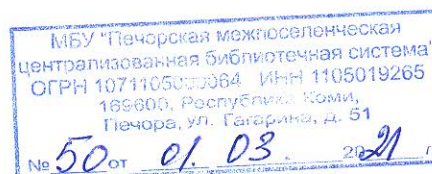 МБУ "Печорская межпоселенческая
централизованная библиотечная система"
ОГРН 1071105000064 ИНН 1105019265
169600, Республика Коми,
Печора, ул. Гагарина, д. 51
№ 50 от 01. 03. 2021 г